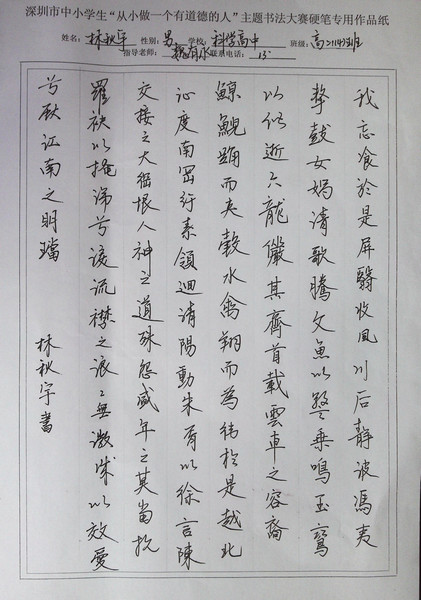 深圳市中小学生“从小做一个有道德的人”主题书法大赛硬笔专用作品纸
姓名：林秋宇 性别：男 学校：科学高中 班级：高二(14)班
指导老师： 联系电话：
我忘飡於是屏翳收風川后静波馮夷
擊鼓女媧清歌騰文魚以警乗鳴玉鸞
以偕逝六龍儼其齊首載雲車之容裔
鯨鯢踊而夾轂水禽翔而為衛於是越北
沚度南岡紆素領迴清陽動朱脣以徐言陳
交接之大綱恨人神之道殊怨盛年之莫當抗
羅袂以掩涕兮淚流襟之浪〻無微誠以效愛
兮献江南之明璫
林秋宇書